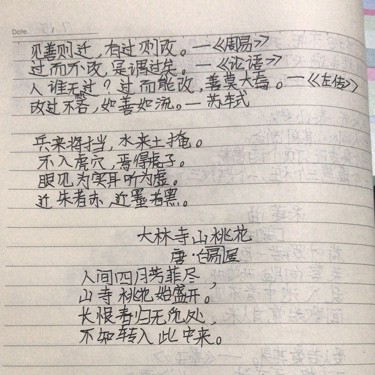 Date
见善则迁，有过则改。——《周易》
过而不改，是谓过矣。——《论语》
人谁无过？过而能改，善莫大焉。——《左传》
改过不吝，如善如流。——苏轼
兵来将挡，水来土掩。
不入虎穴，焉得虎子。
眼见为实耳听为虚。
近朱者赤，近墨者黑。
大林寺山桃花
唐·白居易
人间四月芳菲尽，
山寺桃花始盛开。
长恨春归无觅处，
不知转入此中来。